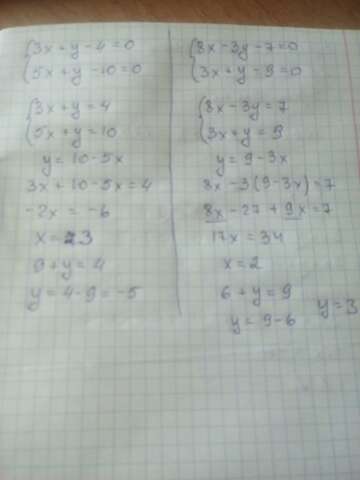 3x + y - 4 = 0
5x + y - 10 = 0
3x + y = 4
5x + y = 10
y = 10 - 5x
3x + 10 - 5x = 4
-2x = -6
x = 3
9 + y = 4
y = 4 - 9 = -5
8x - 3y - 7 = 0
3x + y - 9 = 0
8x - 3y = 7
3x + y = 9
y = 9 - 3x
8x - 3(9 - 3x) = 7
8x - 27 + 9x = 7
17x = 34
x = 2
6 + y = 9
y = 9 - 6 y = 3